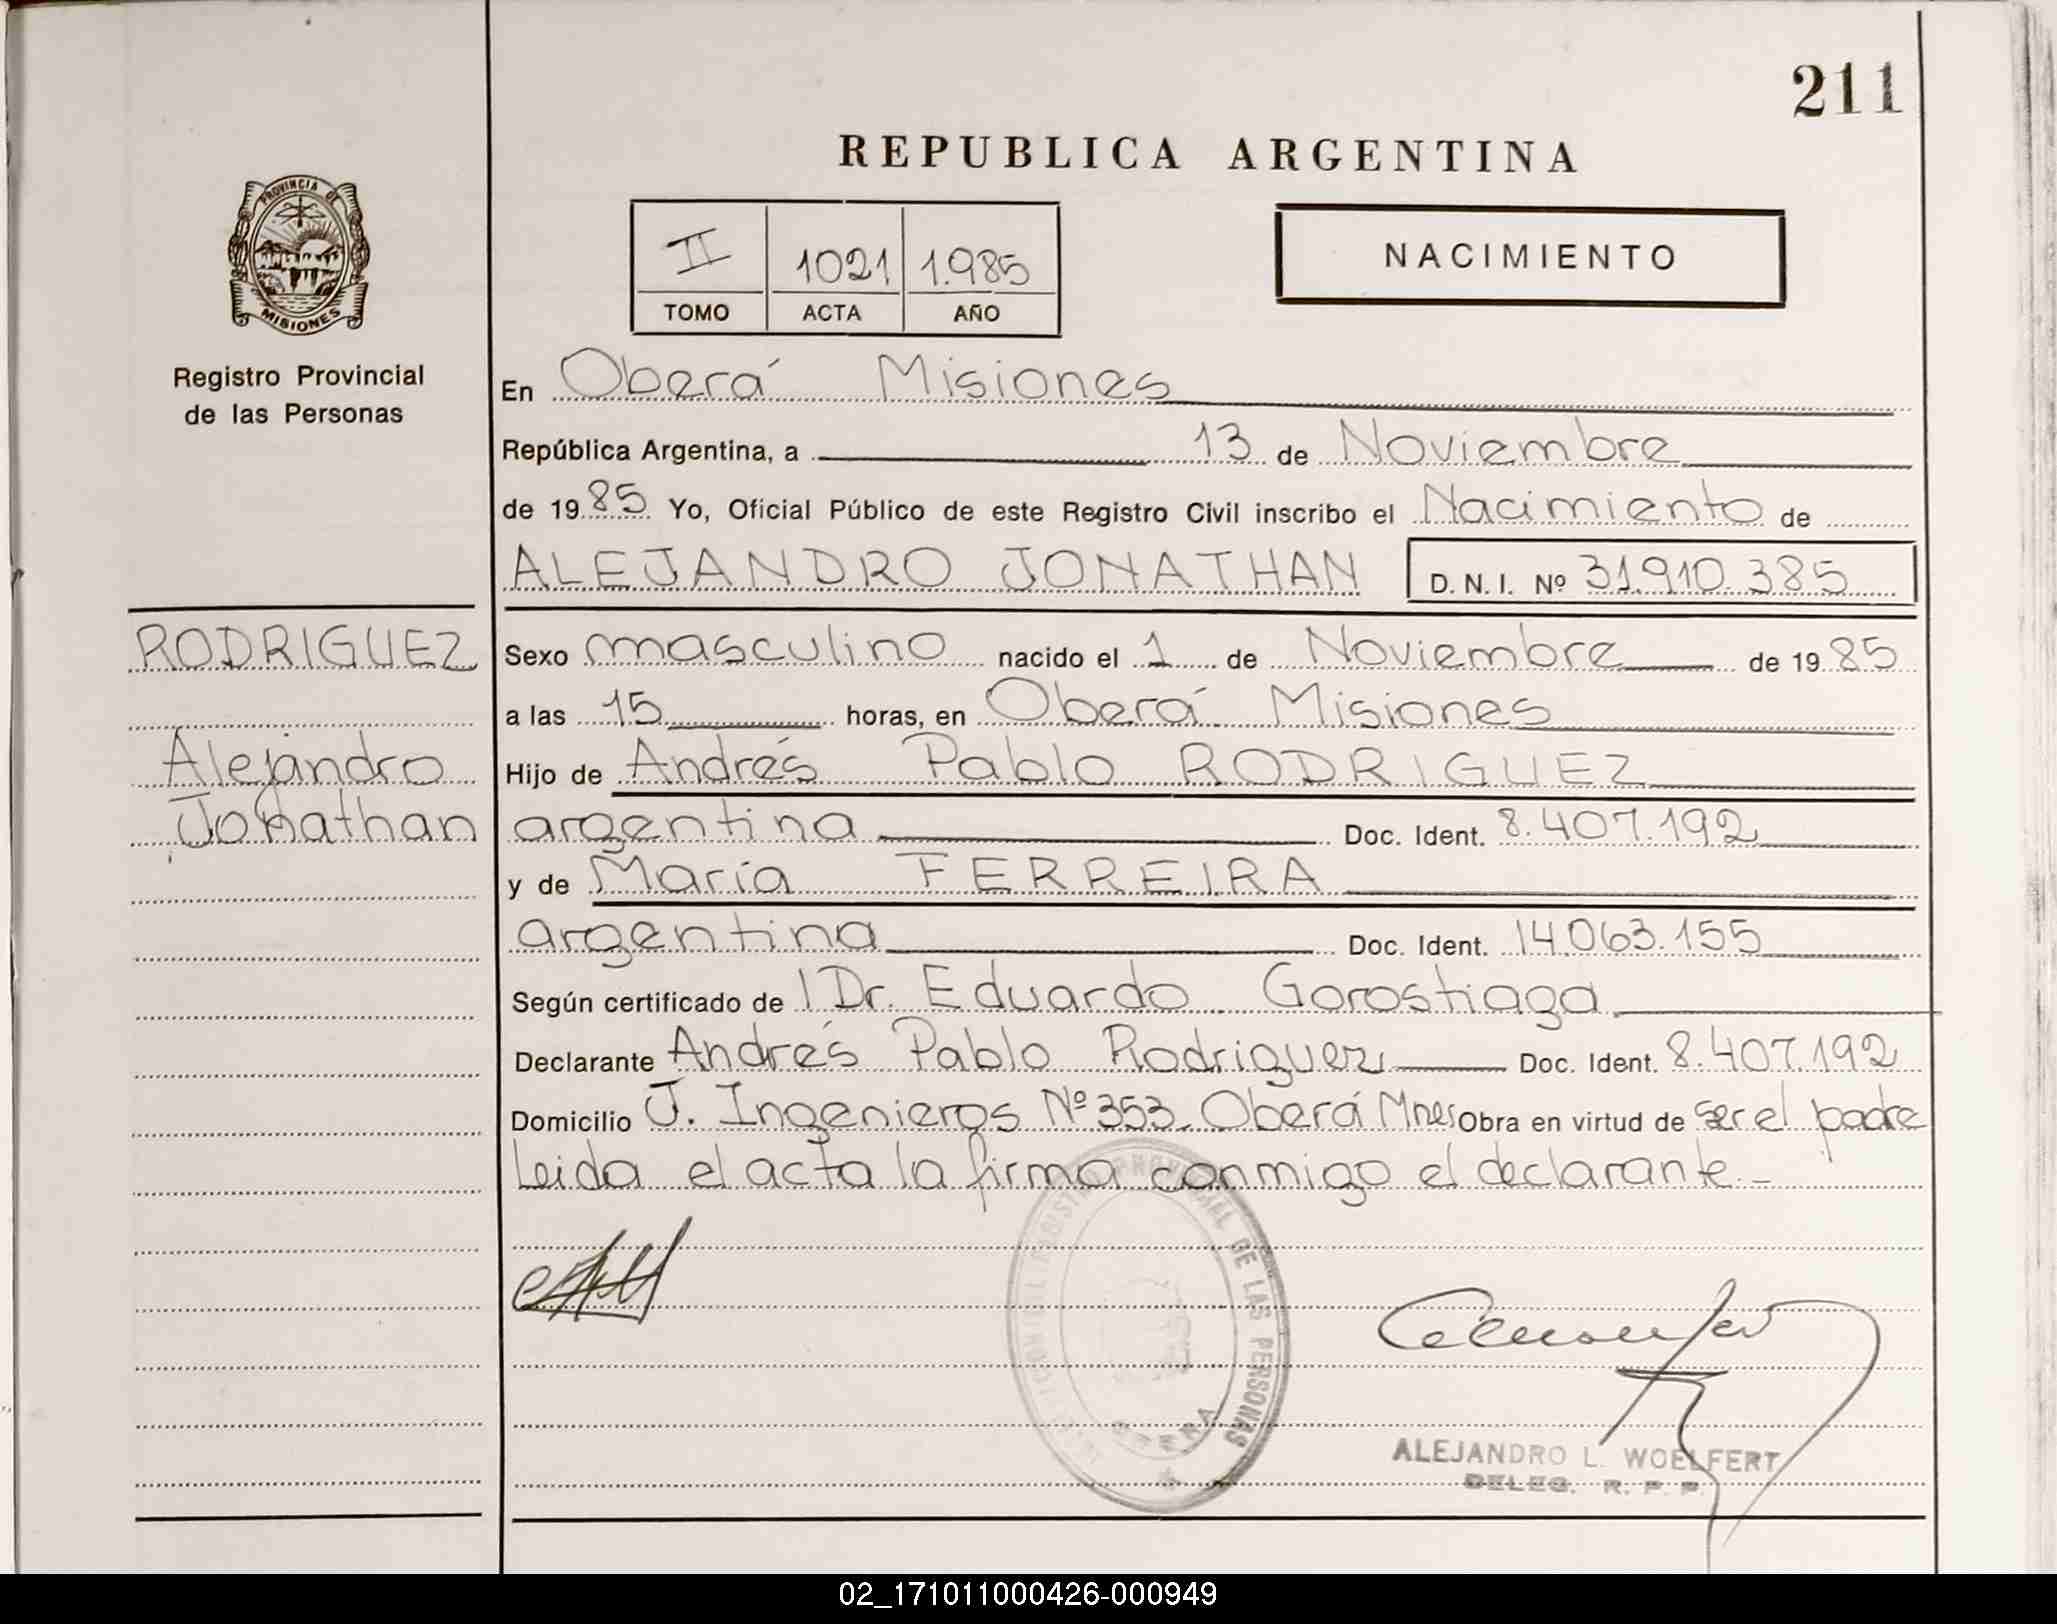 211
REPUBLICA ARGENTINA
PROVINCIA DE
MISIONES
Registro Provincial
de las Personas
II 1021 1.985
TOMO ACTA AÑO
NACIMIENTO
En Oberá Misiones
República Argentina, a 13 de Noviembre
de 1985 Yo, Oficial Público de este Registro Civil inscribo el Nacimiento de
ALEJANDRO JONATHAN D. N. I. Nº 31.910.385
RODRIGUEZ
Alejandro
Jonathan
Sexo masculino nacido el 1 de Noviembre de 1985
a las 15 horas, en Oberá Misiones
Hijo de Andrés Pablo RODRIGUEZ
argentina Doc. Ident. 8.407.192
y de María FERREIRA
argentina Doc. Ident. 14.063.155
Según certificado de l Dr. Eduardo Gorostiaga
Declarante Andrés Pablo Rodriguez Doc. Ident. 8.407.192
Domicilio J. Ingenieros Nº 353. Oberá Mnes Obra en virtud de ser el padre
Leida el acta la firma conmigo el declarante.-
PROVINCIAL DE LAS PERSONAS
OBERA
ALEJANDRO L. WOELFERT
DELEG. R. P. P.
02_171011000426-000949